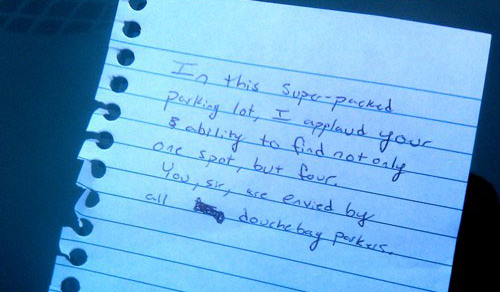 In this super-packed
parking lot, I applaud your
ability to find not only
one spot, but four.
You, sir, are envied by
all douchebag parkers.